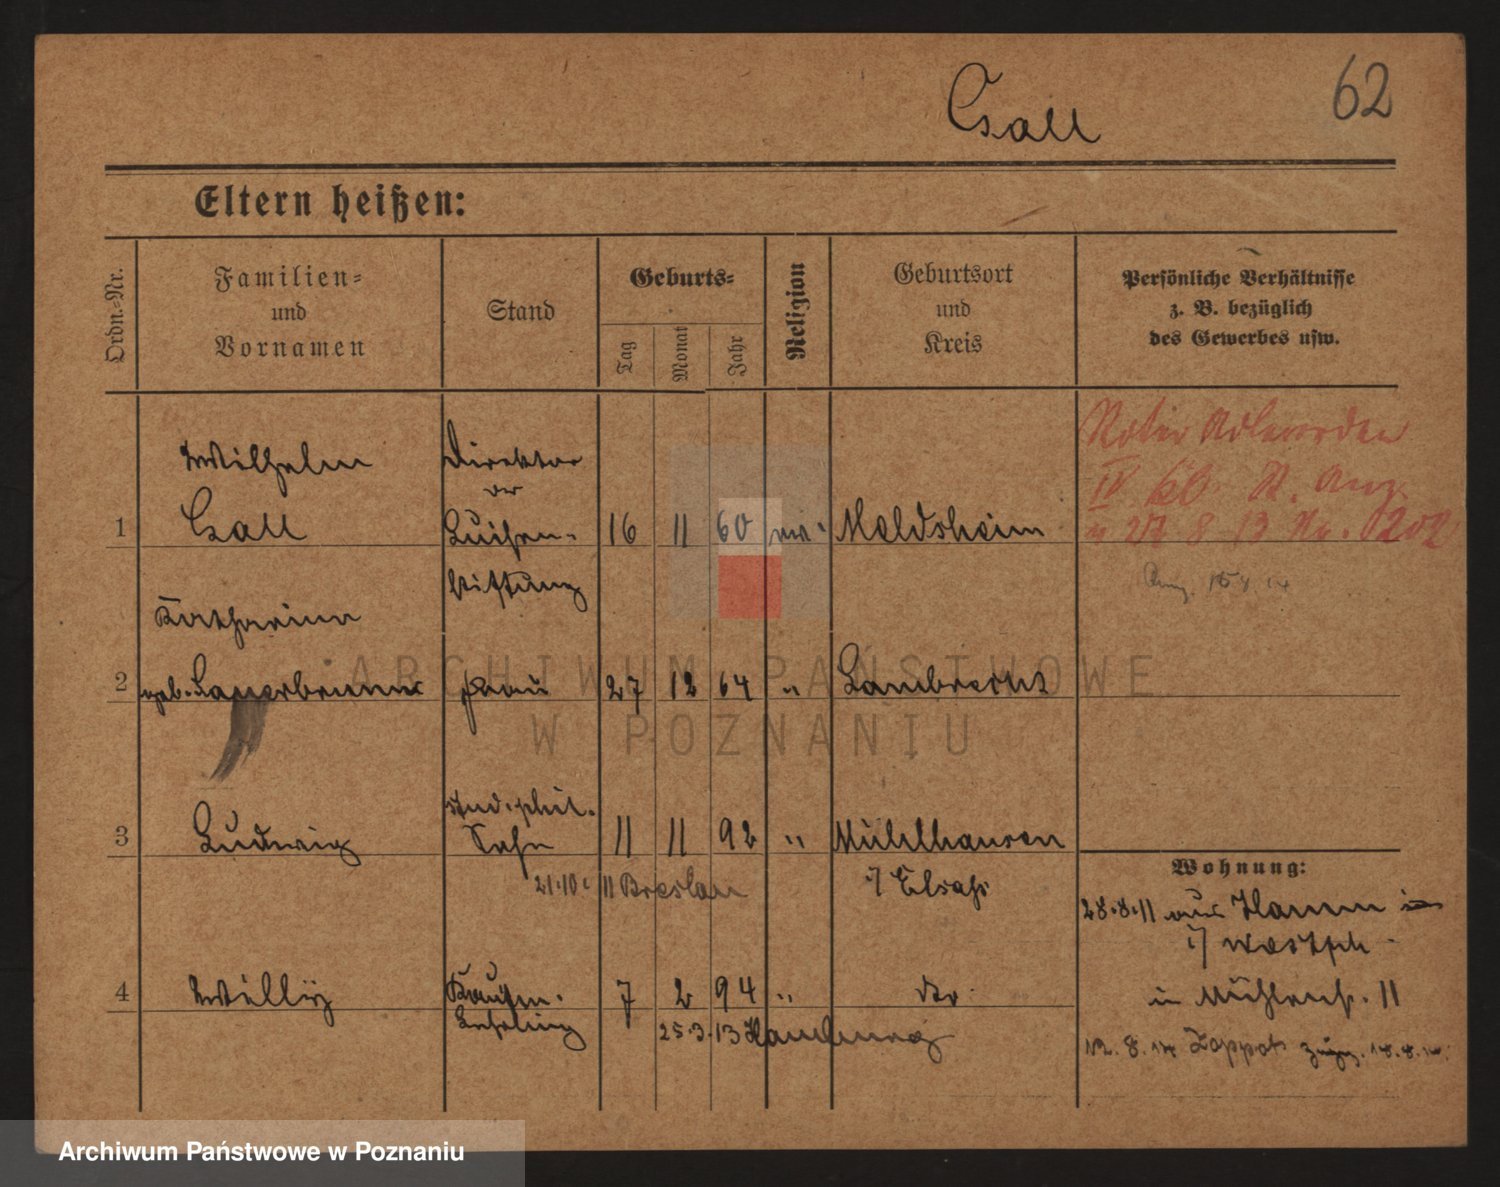 62
Csall
Eltern heißen:
Ordn.-Nr.
Familien-
und
Vornamen
Stand
Geburts-
Tag
Monat
Jahr
Religion
Geburtsort
und
Kreis
Persönliche Verhältnisse
z. B. bezüglich
des Gewerbes usw.
Wilhelm
Direktor
der
Roter Adlerorden
IV Kl. St. Anz.
1 Csall Luisen- 16 11 60 Moldsheim
v 27 8 13 Nr. 202
stiftung
Katharina
2 geb. Frau 27 12 64 " Lambrecht
stud. phil.
3 Ludwig Sohn 11 11 92 " Mühlhausen
21.10. 11 Breslau i/ Elsaß
Wohnung:
28.8.11 aus Hamm
i/ Westph.
4 Willy Kaufm. 7 2 94 " do.
in Mühlenstr. 11
Lehrling 25.3.13 Hamburg
12.8.14 Zoppot
ARCHIWUM PAŃSTWOWE
W POZNANIU
Archiwum Państwowe w Poznaniu